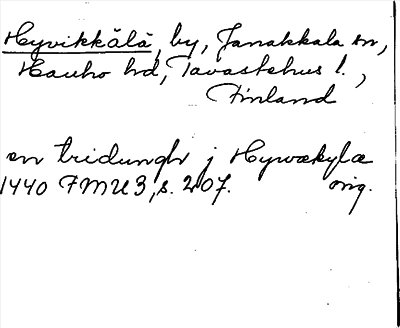 Hyvikkälä, by, Janakkala sn,
Hauho hd, Tavastehus l.,
Finland
en tridungh j Hywækylæ
1440 FMU 3, s. 207. orig.